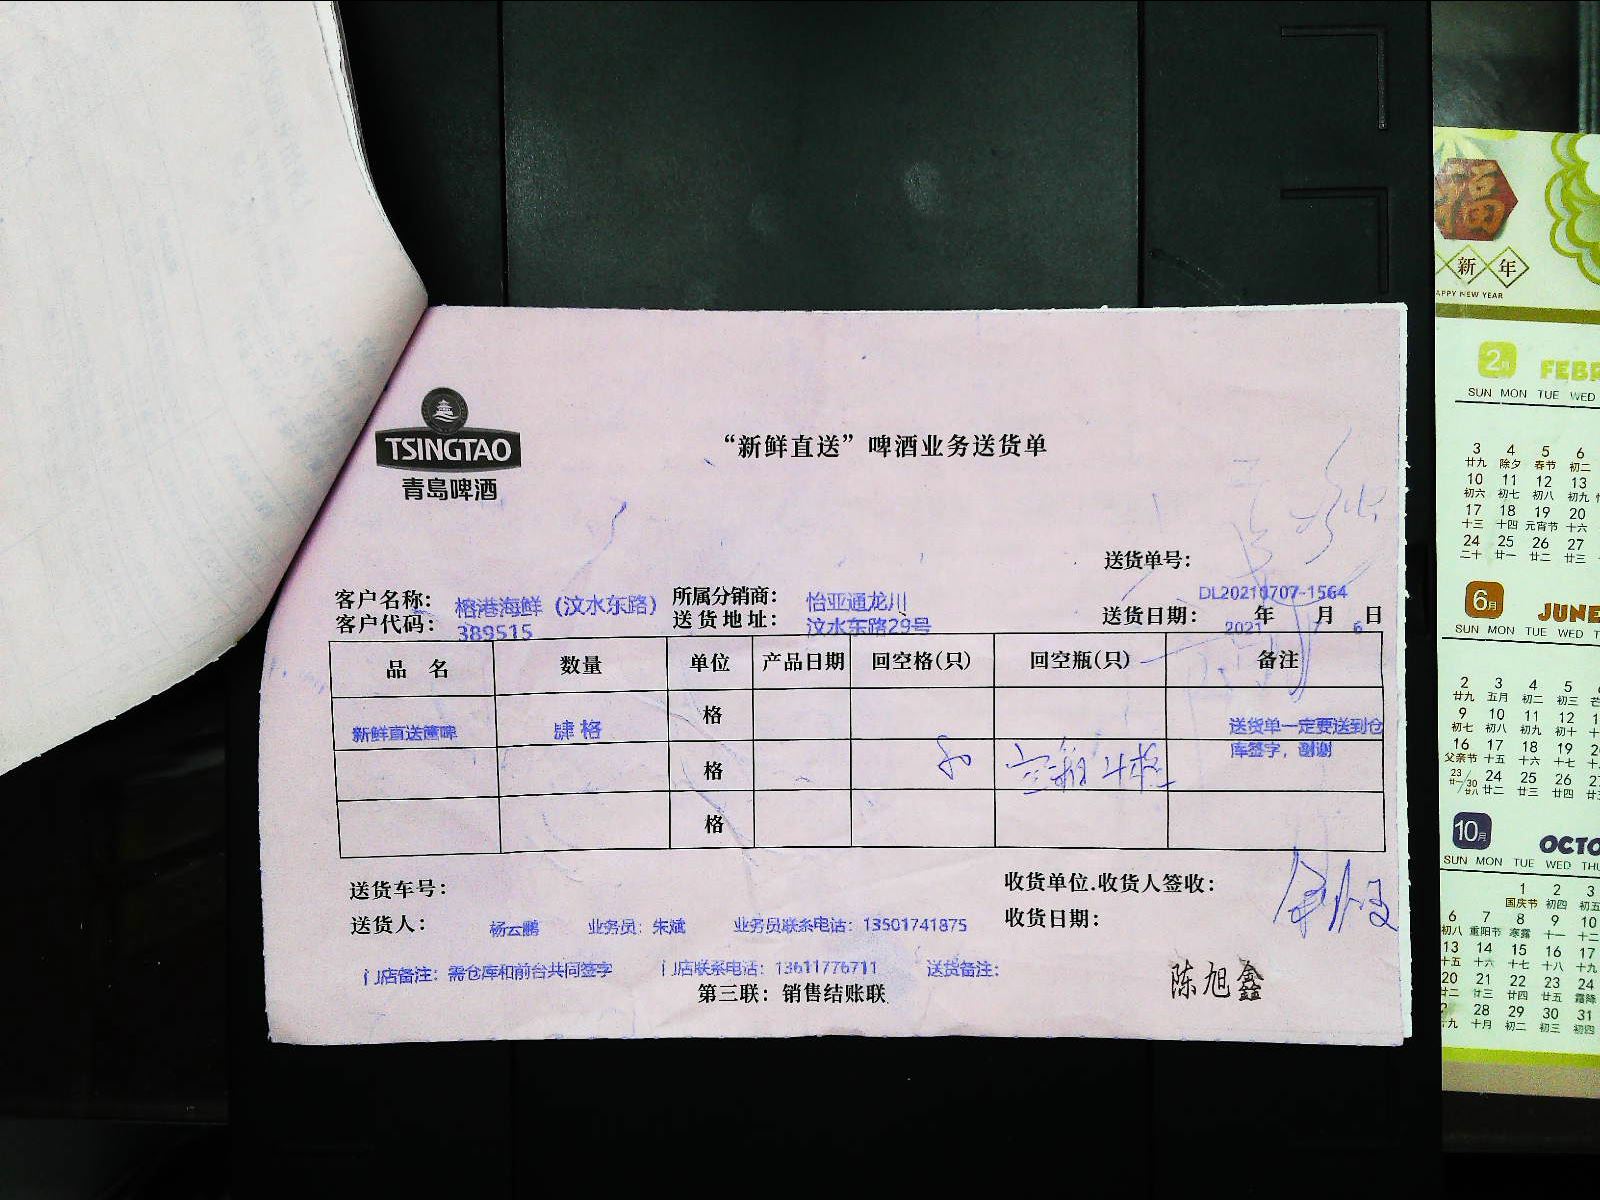 TSINGTAO
青岛啤酒
“新鲜直送”啤酒业务送货单
送货单号：
DL20210707-1564
客户名称： 榕港海鲜（汶水东路） 所属分销商： 怡亚通龙川
客户代码： 389515 送货地址： 汶水东路29号 送货日期： 2021年 月 6日
品 名 数量 单位 产品日期 回空格(只) 回空瓶(只) 备注
新鲜直送筐啤 肆格 格 送货单一定要送到仓
库签字，谢谢
格
格
送货车号： 收货单位.收货人签收：
送货人： 杨云鹏 业务员：朱斌 业务员联系电话：13501741875 收货日期：
门店备注：需仓库和前台共同签字 门店联系电话：13611776711 送货备注：
陈旭鑫
第三联：销售结账联
福
新年
APPY NEW YEAR
2月
SUN MON TUE WED
3 4 5 6
廿九 除夕 春节 初二
10 11 12 13
初六 初七 初八 初九
17 18 19 20
十三 十四 元宵节 十六
24 25 26 27
二十 廿一 廿二 廿三
6月 JUNE
SUN MON TUE WED
2 3 4 5
廿九 五月 初二 初三
9 10 11 12
初七 初八 初九 初十
16 17 18 19
父亲节 十五 十六 十七
23/30 24 25 26
廿二 廿三 廿四
10月
SUN MON TUE WED
1 2 3
国庆节 初四 初五
6 7 8 9 10
初八 重阳节 寒露 十一 十二
13 14 15 16 17
十五 十六 十七 十八 十九
20 21 22 23 24
廿二 廿三 廿四 廿五 霜降
28 29 30 31
十月 初二 初三 初四